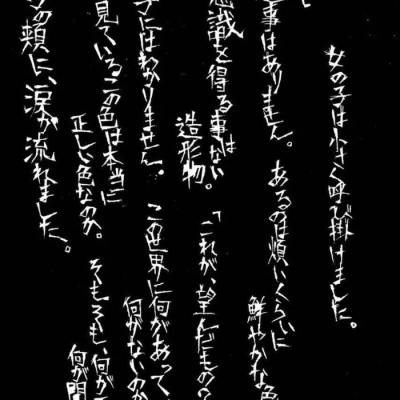 女の子は小さく呼び掛けました。
事はありません。
あるのは煩いくらいに
鮮やかな色
意識を得る事はない
造形物。
「これが、望んだもの?
子にはわかりません。
この世界に何があって
何がないのか
見ている、この色は本当に
正しい色なのか。
そもそも、何が
何が間
の頬に、涙が流れました。